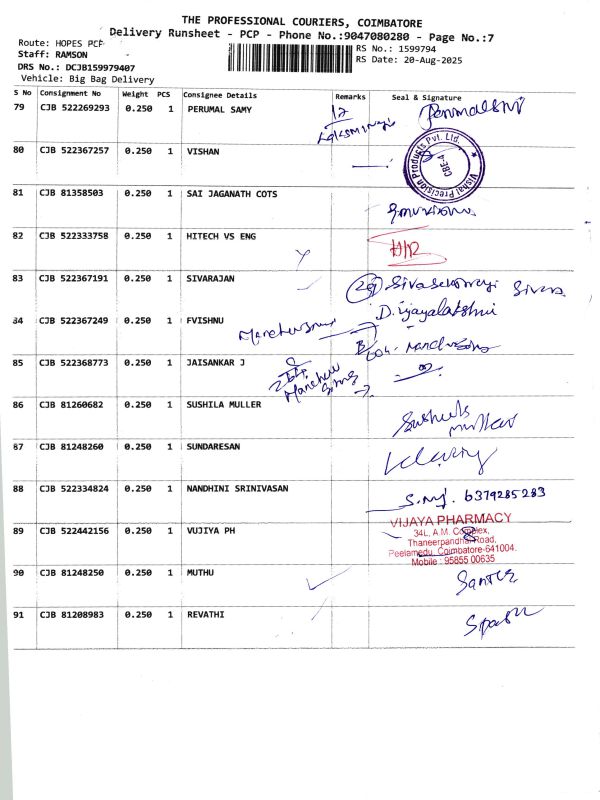 THE PROFESSIONAL COURIERS, COIMBATORE
Delivery Runsheet - PCP - Phone No.:9047080280 - Page No.:7
Route: HOPES PCP
Staff: RAMSON
DRS No.: DCJB159979407
Vehicle: Big Bag Delivery
RS No.: 1599794
RS Date: 20-Aug-2025
S No Consignment No Weight PCS Consignee Details Remarks Seal & Signature
79 CJB 522269293 0.250 1 PERUMAL SAMY
80 CJB 522367257 0.250 1 VISHAN
Products Pvt. Ltd.
CBE-4
Precision
81 CJB 81358503 0.250 1 SAI JAGANATH COTS
82 CJB 522333758 0.250 1 HITECH VS ENG
83 CJB 522367191 0.250 1 SIVARAJAN
84 CJB 522367249 0.250 1 FVISHNU
D. Vijayalakshmi
85 CJB 522368773 0.250 1 JAISANKAR J
86 CJB 81260682 0.250 1 SUSHILA MULLER
87 CJB 81248260 0.250 1 SUNDARESAN
88 CJB 522334824 0.250 1 NANDHINI SRINIVASAN
6379285283
89 CJB 522442156 0.250 1 VUJIYA PH
VIJAYA PHARMACY
34L, A.M. Complex,
Thaneerpandhal Road,
Peelamedu, Coimbatore-641004.
Mobile : 95855 00635
90 CJB 81248250 0.250 1 MUTHU
91 CJB 81208983 0.250 1 REVATHI